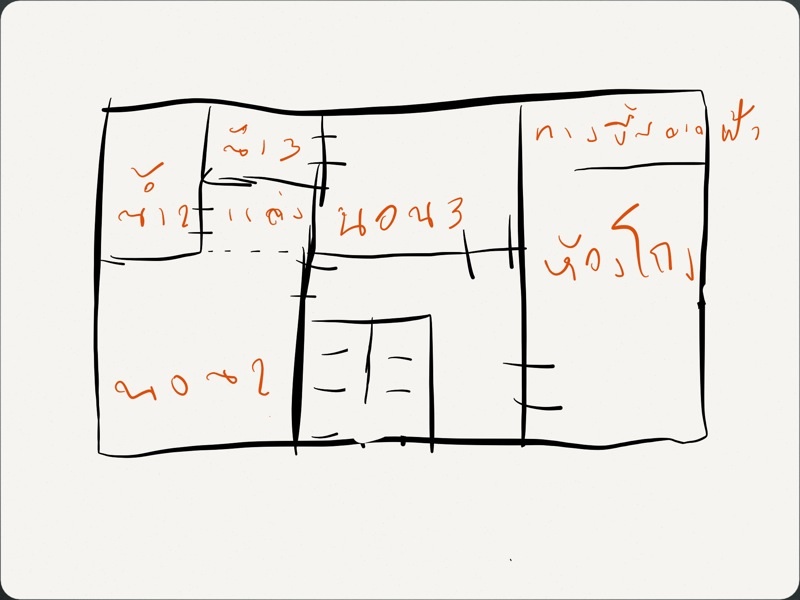 น้ำ3
ทางขึ้นดาดฟ้า
น้ำ2
แต่ง
นอน3
ห้องโถง
นอน2